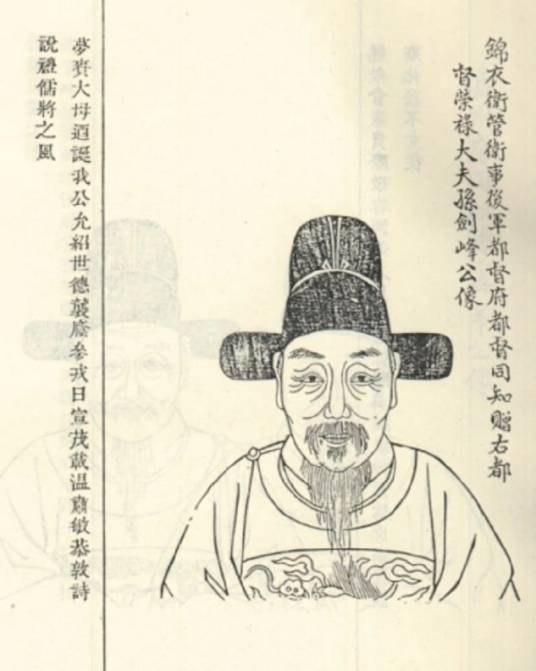 錦衣衛管衛事後軍都督府都督同知贈右都
督榮祿大夫孫劍峰公像
夢賚大母迺誕我公允紹世德襲廕參戎日宣茂戩溫肅敏恭敦詩
說禮儒將之風